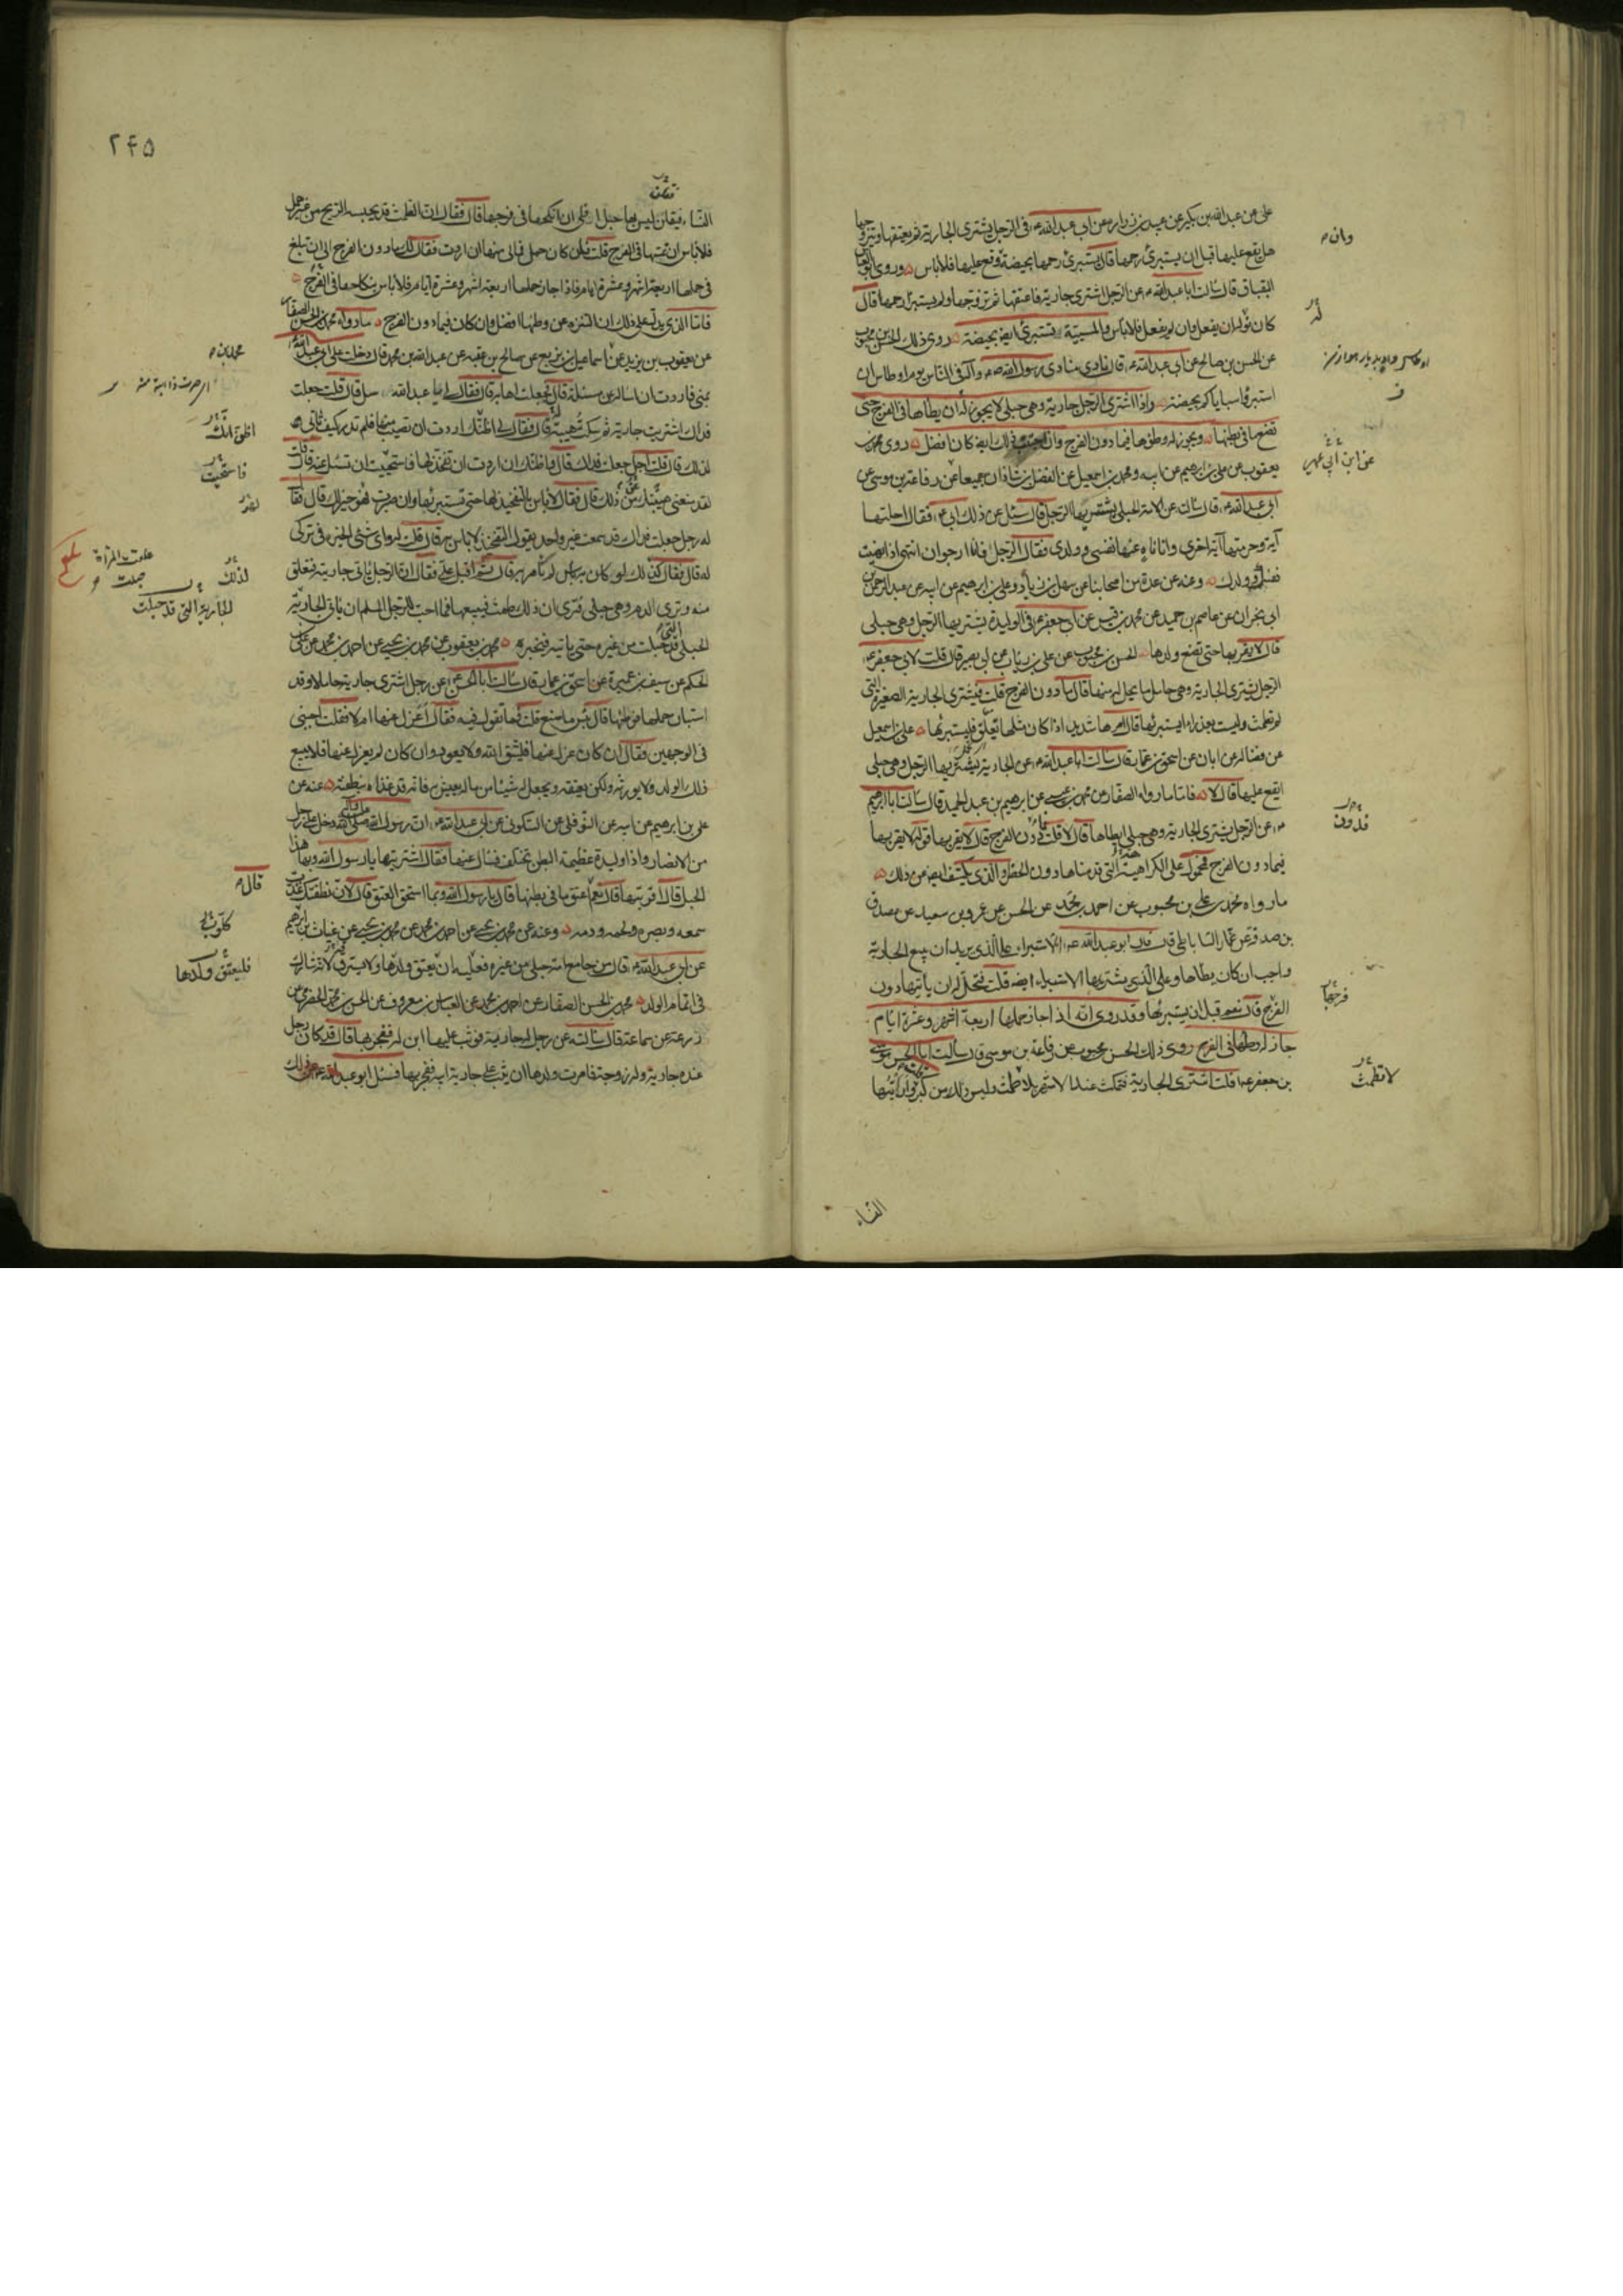 على عن عبدالله بن بكير عن عبيد بن زرارة عن ابى عبدالله ع فى الرجل يشترى الجارية ثم يعتقها ويتزوجها
هل يقع عليها قبل ان يستبرئ رحمها قال يستبرئ رحمها بحيضة وقع عليها فلا بأس وروى ابو العباس
البقباق قال سألت ابا عبدالله ع عن الرجل اشترى جارية فاعتقها ثم تزوجها ولم يستبرئ رحمها قال
كان له ان يفعل وان لم يفعل فلا بأس والمسبية تستبرئ ايضا بحيضة روى ذلك الحسن بن محبوب
عن الحسن بن صالح عن ابى عبدالله ع قال نادى منادى رسول الله ص فى الناس يوم اوطاس ان
استبرؤا سباياكم بحيضة واذا اشترى الرجل جارية وهى حبلى لا يجوز له ان يطأها فى الفرج حتى
تضع ما فى بطنها ويجوز له وطؤها فيما دون الفرج وان اجتنب ذلك ايضا كان افضل روى محمد بن
يعقوب عن على بن ابرهيم عن ابيه ومحمد بن اسمعيل عن الفضل بن شاذان جميعا عن رفاعة بن موسى عن
ابى عبدالله ع قال سألت عن الامة الحبلى يشتريها الرجل قال سئل عن ذلك ابى ع فقال احلتها
آية وحرمتها آية اخرى وانا ناه عنها نفسى وولدى فقال الرجل فانا ارجو ان انتهى اذا نهيت
نفسك وولدك وعنه عن عدة من اصحابنا عن سهل بن زياد وعلى بن ابرهيم عن ابيه عن عبد الرحمن بن
ابى نجران عن عاصم بن حميد عن محمد بن قيس عن ابى جعفر ع فى الوليدة يشتريها الرجل وهى حبلى
قال لا يقربها حتى تضع ولدها الحسن بن محبوب عن على بن رئاب عن ابى بصير قال قلت لابى جعفر ع
الرجل يشترى الجارية وهى حامل ما يحل له منها قال ما دون الفرج قلت فيشترى الجارية الصغيرة التى
لم تطمث وليست بعذراء ايستبرئها قال امرها شديد اذا كان مثلها تعلق فليستبرئها على بن اسمعيل
عن فضالة عن ابان عن اسحق بن عمار قال سألت ابا عبدالله ع عن الجارية يشتريها الرجل وهى حبلى
ايقع عليها قال لا فاما ما رواه الصفار عن محمد بن عيسى عن ابرهيم بن عبد الحميد قال سألت ابا ابرهيم
ع عن الرجل يشترى الجارية وهى حبلى ايطأها قال لا قلت فدون الفرج قال لا يقربها قوله لا يقربها
فيما دون الفرج محمول على الكراهية التى قدمناها دون الحظر والذى يكشف ايضا عن ذلك
ما رواه محمد بن على بن محبوب عن احمد بن محمد عن الحسن عن عمرو بن سعيد عن مصدق
بن صدقة عن عمار الساباطى قال قال ابو عبدالله ع الاستبراء على الذى يريد ان يبيع الجارية
واجب ان كان يطأها وعلى الذى يشتريها الاستبراء ايضا قلت فيحل له ان يأتيها دون
الفرج قال نعم قبل ان يستبرئها وقد روى انه اذا جاز حملها اربعة اشهر وعشرة ايام
جاز له وطؤها فى الفرج روى ذلك الحسن بن محبوب عن رفاعة بن موسى قال سألت ابا الحسن موسى
بن جعفر ع قلت اشترى الجارية فتمكث عندى الاشهر لا تطمث وليس ذلك من كبر واريتها
وان
له
عن ابن ابى عمير
فدون
فرجها
لا تطمث
النساء
٢۴۵
النساء فيقلن ليس بها حبل افلى ان انكحها فى فرجها قال فقال ان الطمث قد يحبسه الريح من غير حمل
فلا بأس ان تمسها فى الفرج قلت فان كان حمل فما لى منها ان اردت فقال لك ما دون الفرج الى ان تبلغ
فى حملها اربعة اشهر وعشرة ايام فاذا جاز حملها اربعة اشهر وعشرة ايام فلا بأس بنكاحها فى الفرج
فاما الذى يدل على ذلك ان التنزه عن وطيها افضل وان كان فيما دون الفرج ما رواه محمد بن الحسن الصفار
عن يعقوب بن يزيد عن اسماعيل بن بزيع عن صالح بن عقبة عن عبدالله بن محمد قال دخلت على ابى عبدالله ع
بمنى فاردت ان اسأله عن مسئلة قال فجعلت اهابه قال فقال لى يا عبدالله سل قال قلت جعلت
فداك اشتريت جارية ثم سكت هيبة له قال فقال لى اظنك اردت ان تصيب منها فلم تدر كيف تأتى
لذلك قال قلت اجل جعلت فداك قال واظنك اردت ان تفخذ لها فاستحييت ان تسئل عنه قال قلت
لقد منعنى هيبتك من ذلك قال فقال لا بأس بالتفخيذ لها حتى تستبرئها وان صبرت فهو خير لك قال فقال
له رجل جعلت فداك قد سمعت غير واحد يقول التفخيذ لا بأس به قال قلت له واى شئ الخيرة فى تركى
له قال فقال كذلك لو كان به بأس لم نأمر به قال ثم اقبل على فقال ان الرجل يأتى جاريته فتعلق
منه وترى الدم وهى حبلى فترى ان ذلك طمث فيبيعها فما احب للرجل المسلم ان يأتى الجارية
الحبلى قد حبلت من غيره حتى يأتيه فيخبره محمد بن يعقوب عن محمد بن يحيى عن احمد بن محمد عن على بن
الحكم عن سيف بن عميرة عن اسحق بن عمار قال سألت ابا الحسن ع عن رجل اشترى جارية حاملا وقد
استبان حملها فوطئها قال بئس ما صنع قلت فما تقول فيه فقال اعزل عنها ام لا فقلت اجبنى
فى الوجهين فقال ان كان عزل عنها فليتق الله ولا يعود وان كان لم يعزل عنها فلا يبيع
ذلك الولد ولا يورثه ولكن يعتقه ويجعل له شيئا من ماله يعيش به فانه قد غذاه بنطفته عنه عن
على بن ابرهيم عن ابيه عن النوفلى عن السكونى عن ابى عبدالله ع ان رسول الله صلى الله عليه وآله دخل على رجل
من الانصار واذا وليدة عظيمة البطن تختلف فسأل عنها فقال اشتريتها يا رسول الله وبها هذا
الحبل قال اقربتها قال نعم قال اعتق ما فى بطنها قال يا رسول الله وبما استحق العتق قال لان نطفتك غذت
سمعه وبصره ولحمه ودمه وعنه عن محمد بن يحيى عن احمد بن محمد عن محمد بن يحيى عن غياث بن ابرهيم
عن ابى عبدالله ع قال من جامع امة حبلى من غيره فعليه ان يعتق ولدها ولا يسترق لانه شارك
فى اتمام الولد محمد بن الحسن الصفار عن احمد بن محمد عن العباس بن معروف عن الحسن بن محمد الحضرمى عن
زرعة عن سماعة قال سألته عن رجل له جارية فوثب عليها ابن له ففجر بها قال قد كان رجل
عنده جارية وله زوجة فامرت ولدها ان يثب على جارية ابيه ففجر بها فسئل ابو عبدالله ع عن ذلك
محمد بن
اظن انك
فاستحييت
لذلك
الجارية التى قد حبلت
قال
فليعتق ولدها